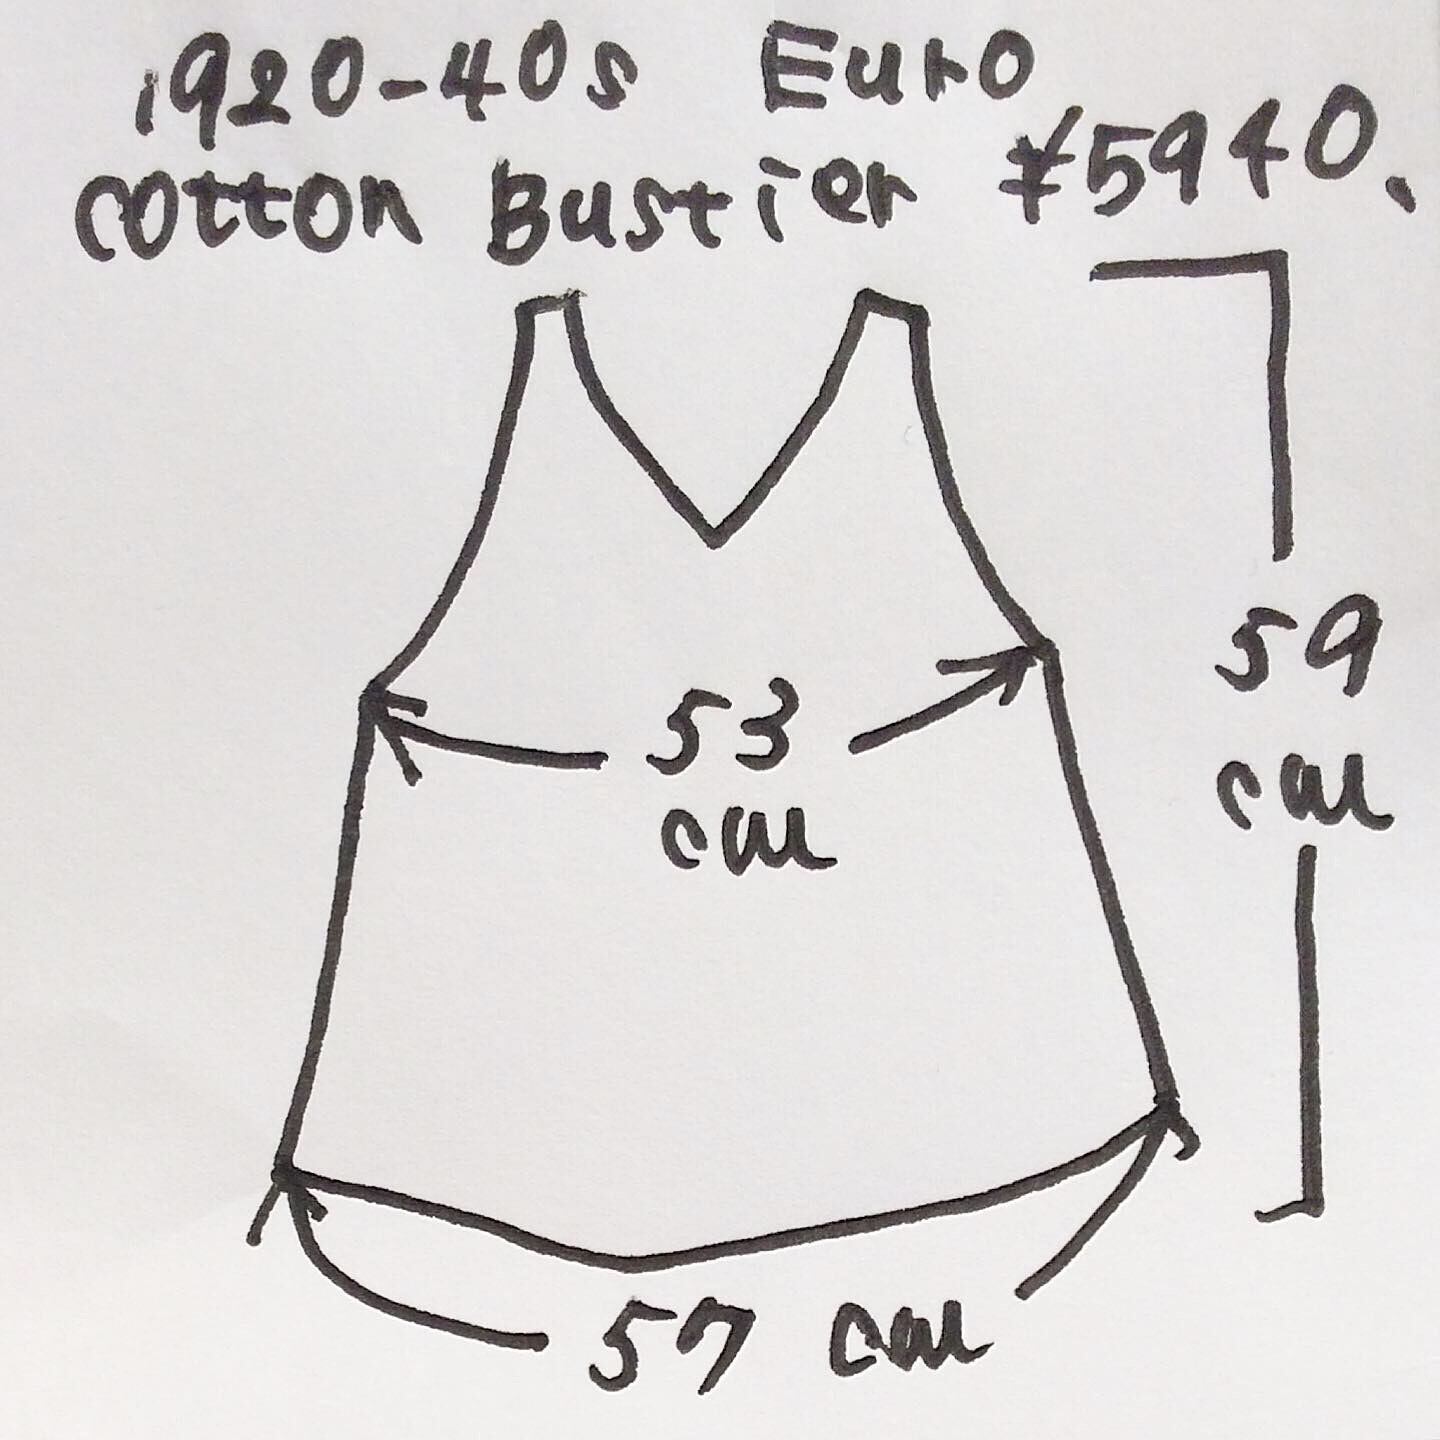 1920-40s Euro
cotton Bustier ¥5940.
53
cm
59
cm
57 cm